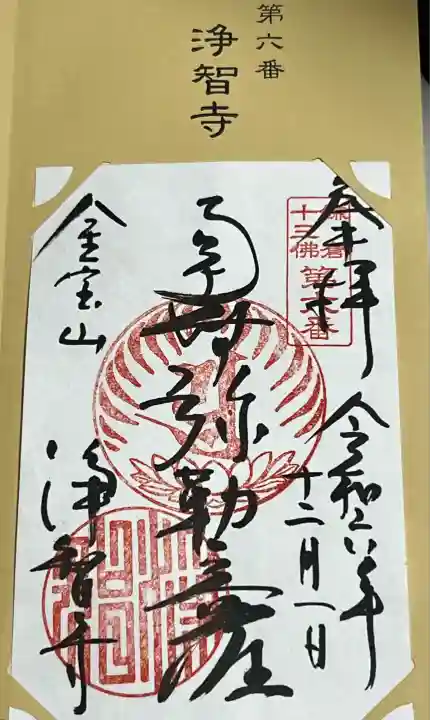 第六番
浄智寺
奉拝
鎌倉
十三佛
第六番
令和六年
十二月一日
弥勒菩薩
金宝山
浄智寺